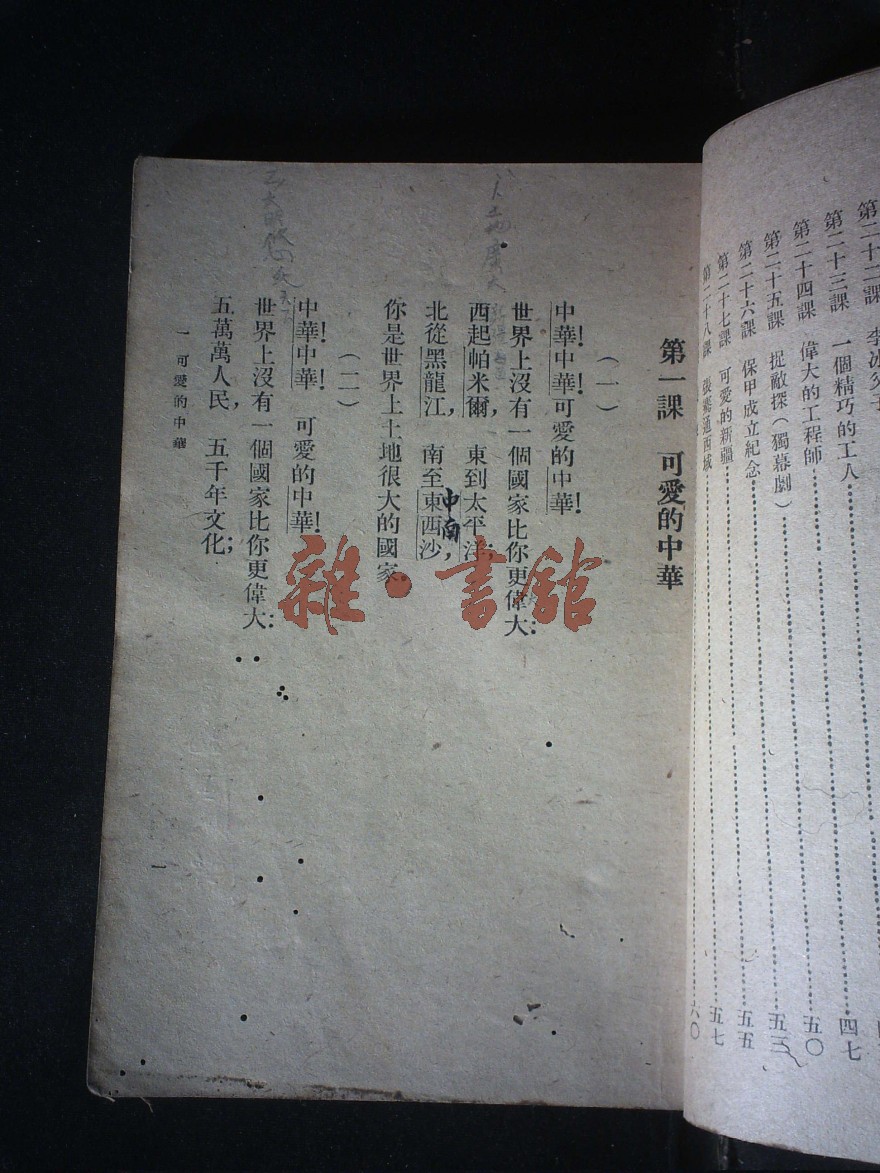 第二十三課　一個精巧的工人 四七
第二十四課　偉大的工程師 五〇
第二十五課　捉敵探（獨幕劇） 五三
第二十六課　保甲成立紀念 五五
第二十七課　可愛的新疆 五七
第二十八課　張騫通西域 六〇
第一課　可愛的中華
（一）
中華！中華！可愛的中華！
世界上沒有一個國家比你更偉大：
西起帕米爾，東到太平洋；
北從黑龍江，南至東西沙
中南，
你是世界上土地很大的國家。
（二）
中華！中華！　可愛的中華！
世界上沒有一個國家比你更偉大：
五萬萬人民，五千年文化；
一　可愛的中華
一
雜·書館